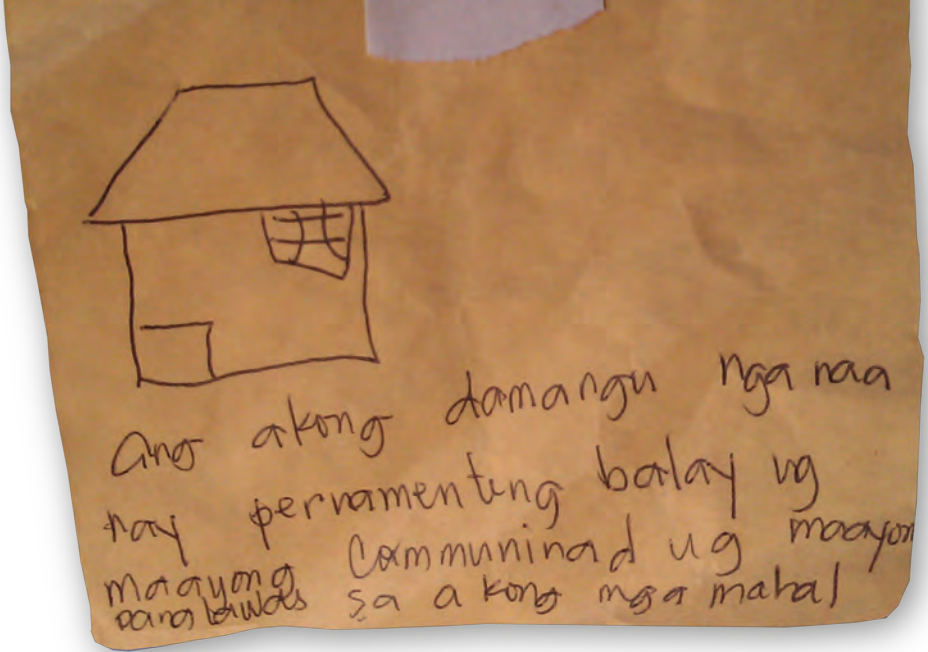 Ang akong damangu nga naa
nay pernamenting balay ug
maayong Communinad ug maayon
panglawas sa akong mga mahal